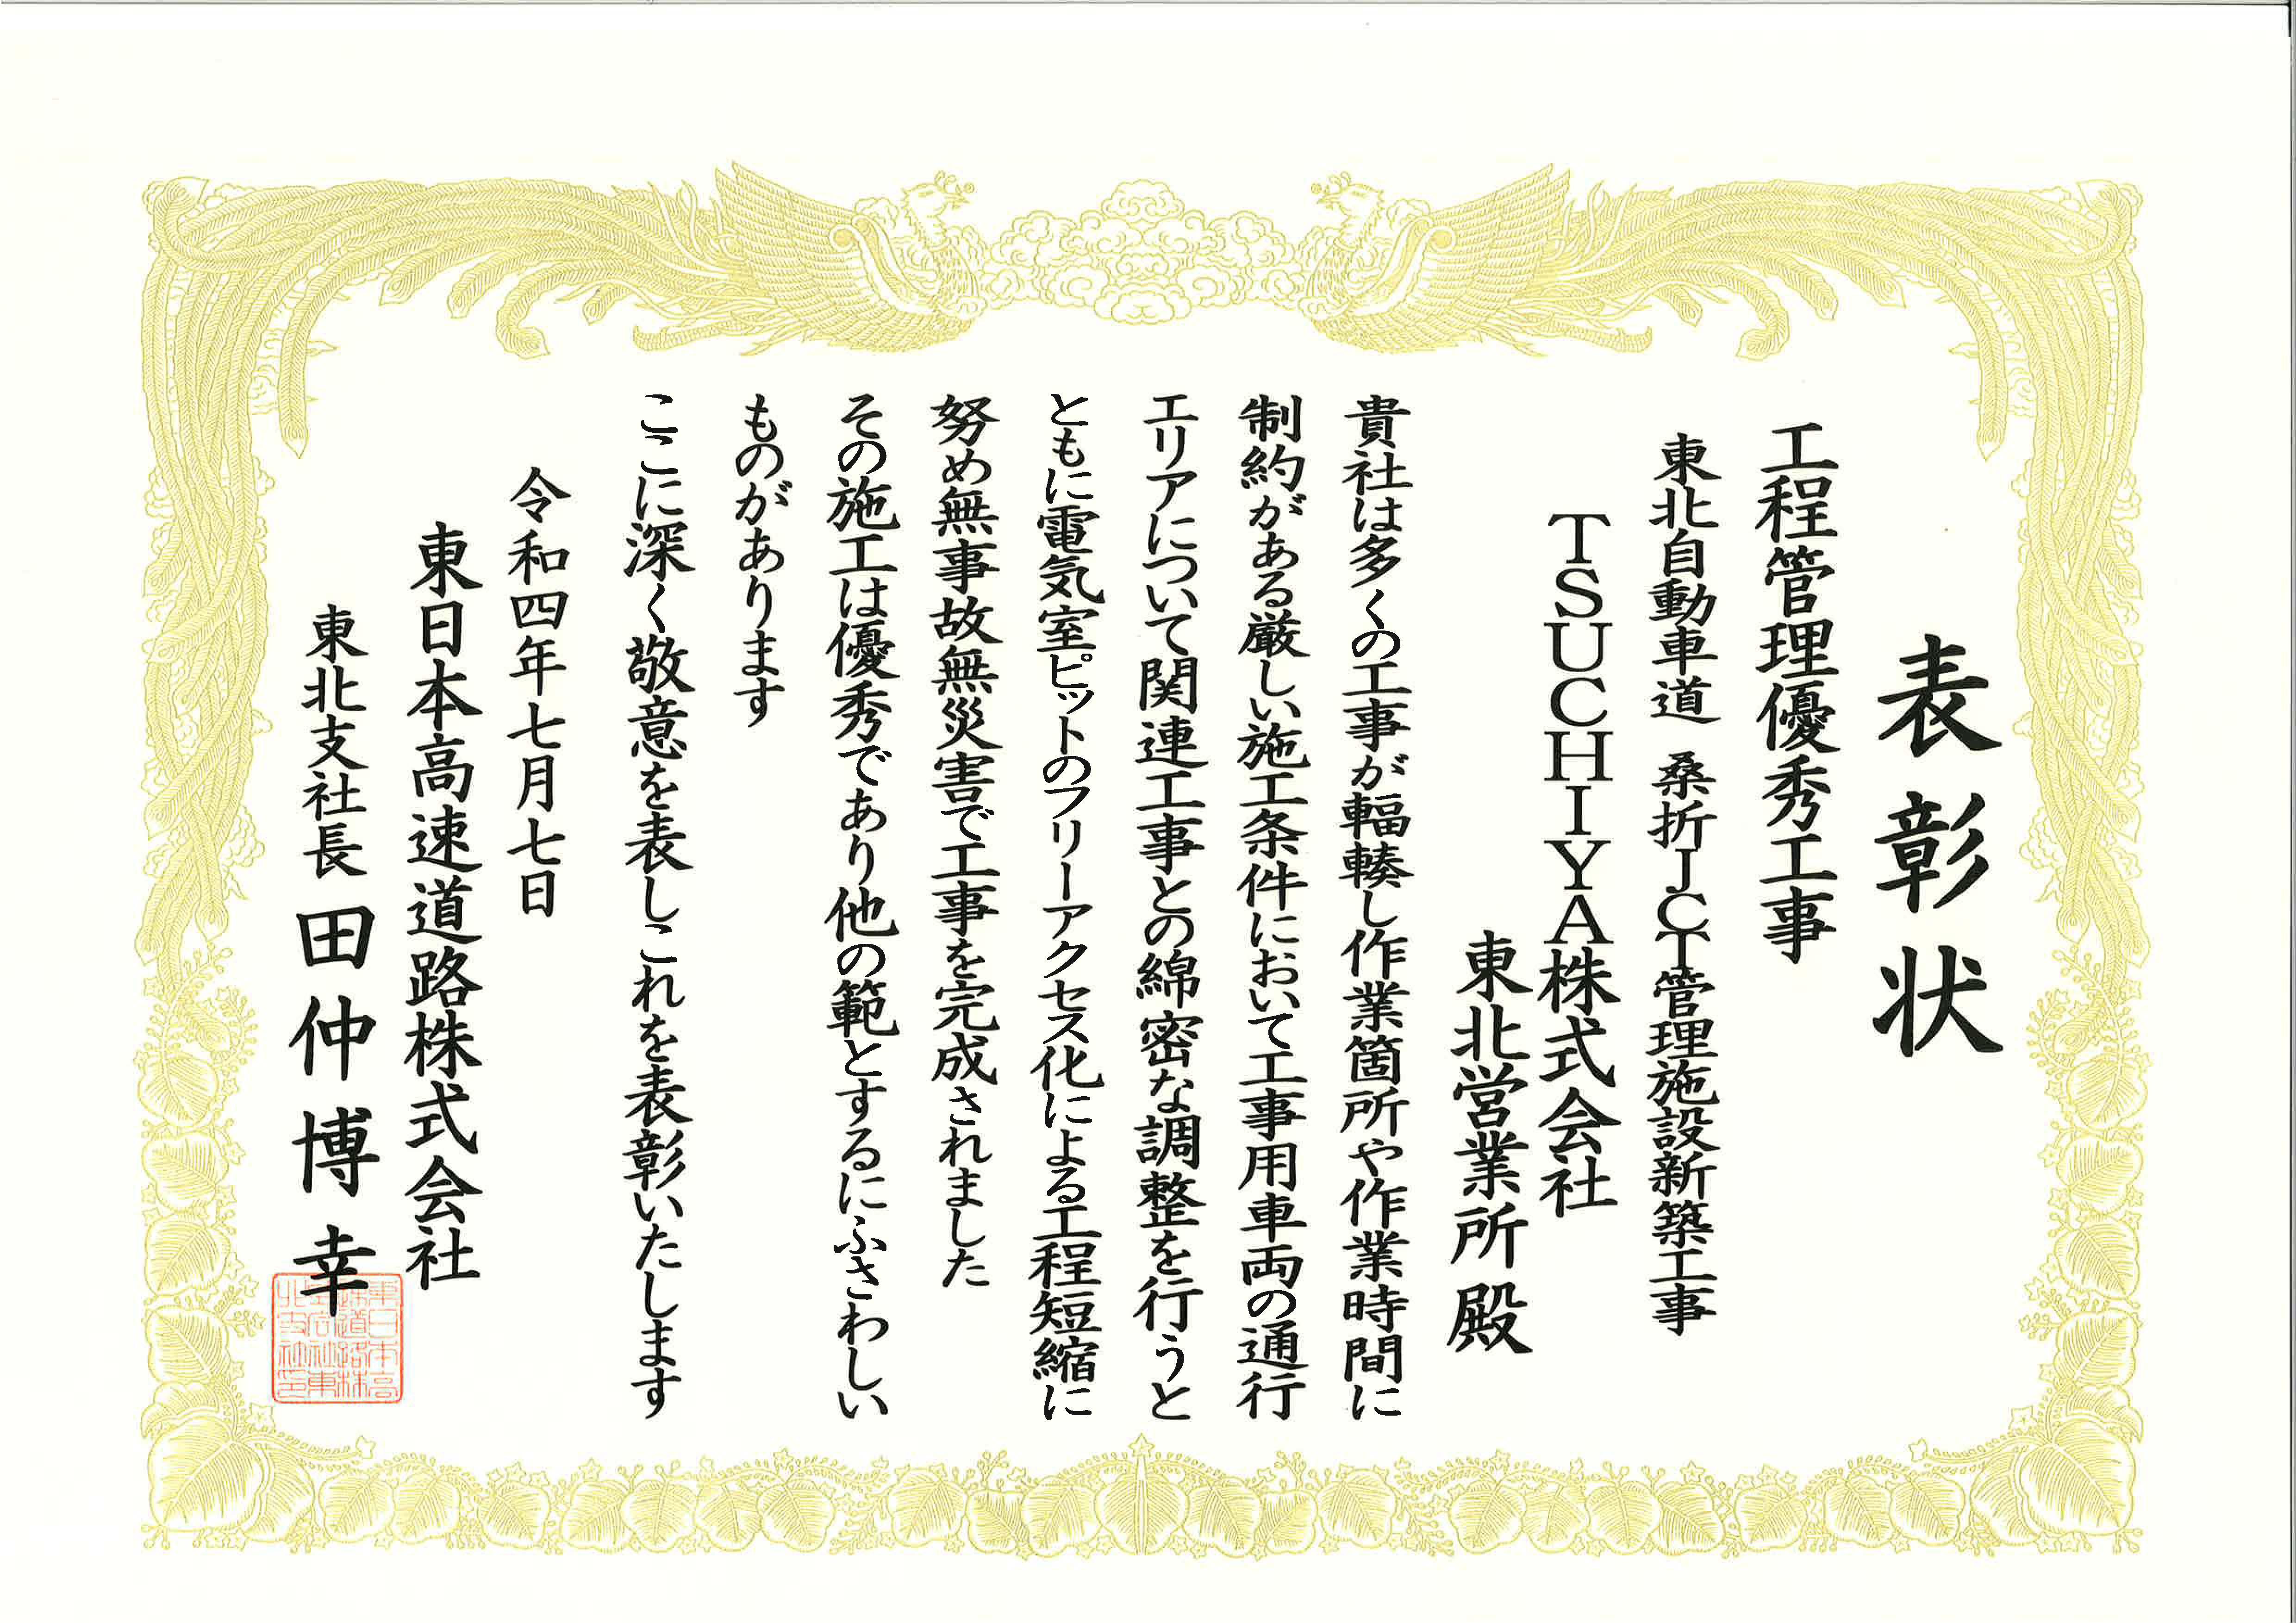 表彰状
工程管理優秀工事
東北自動車道 桑折JCT管理施設新築工事
TSUCHIYA株式会社
東北営業所 殿
貴社は多くの工事が輻輳し作業箇所や作業時間に
制約がある厳しい施工条件において工事用車両の通行
エリアについて関連工事との綿密な調整を行うと
ともに電気室ピットのフリーアクセス化による工程短縮に
努め無事故無災害で工事を完成されました
その施工は優秀であり他の範とするにふさわしい
ものがあります
ここに深く敬意を表しこれを表彰いたします
令和四年七月七日
東日本高速道路株式会社
東北支社長 田仲博幸